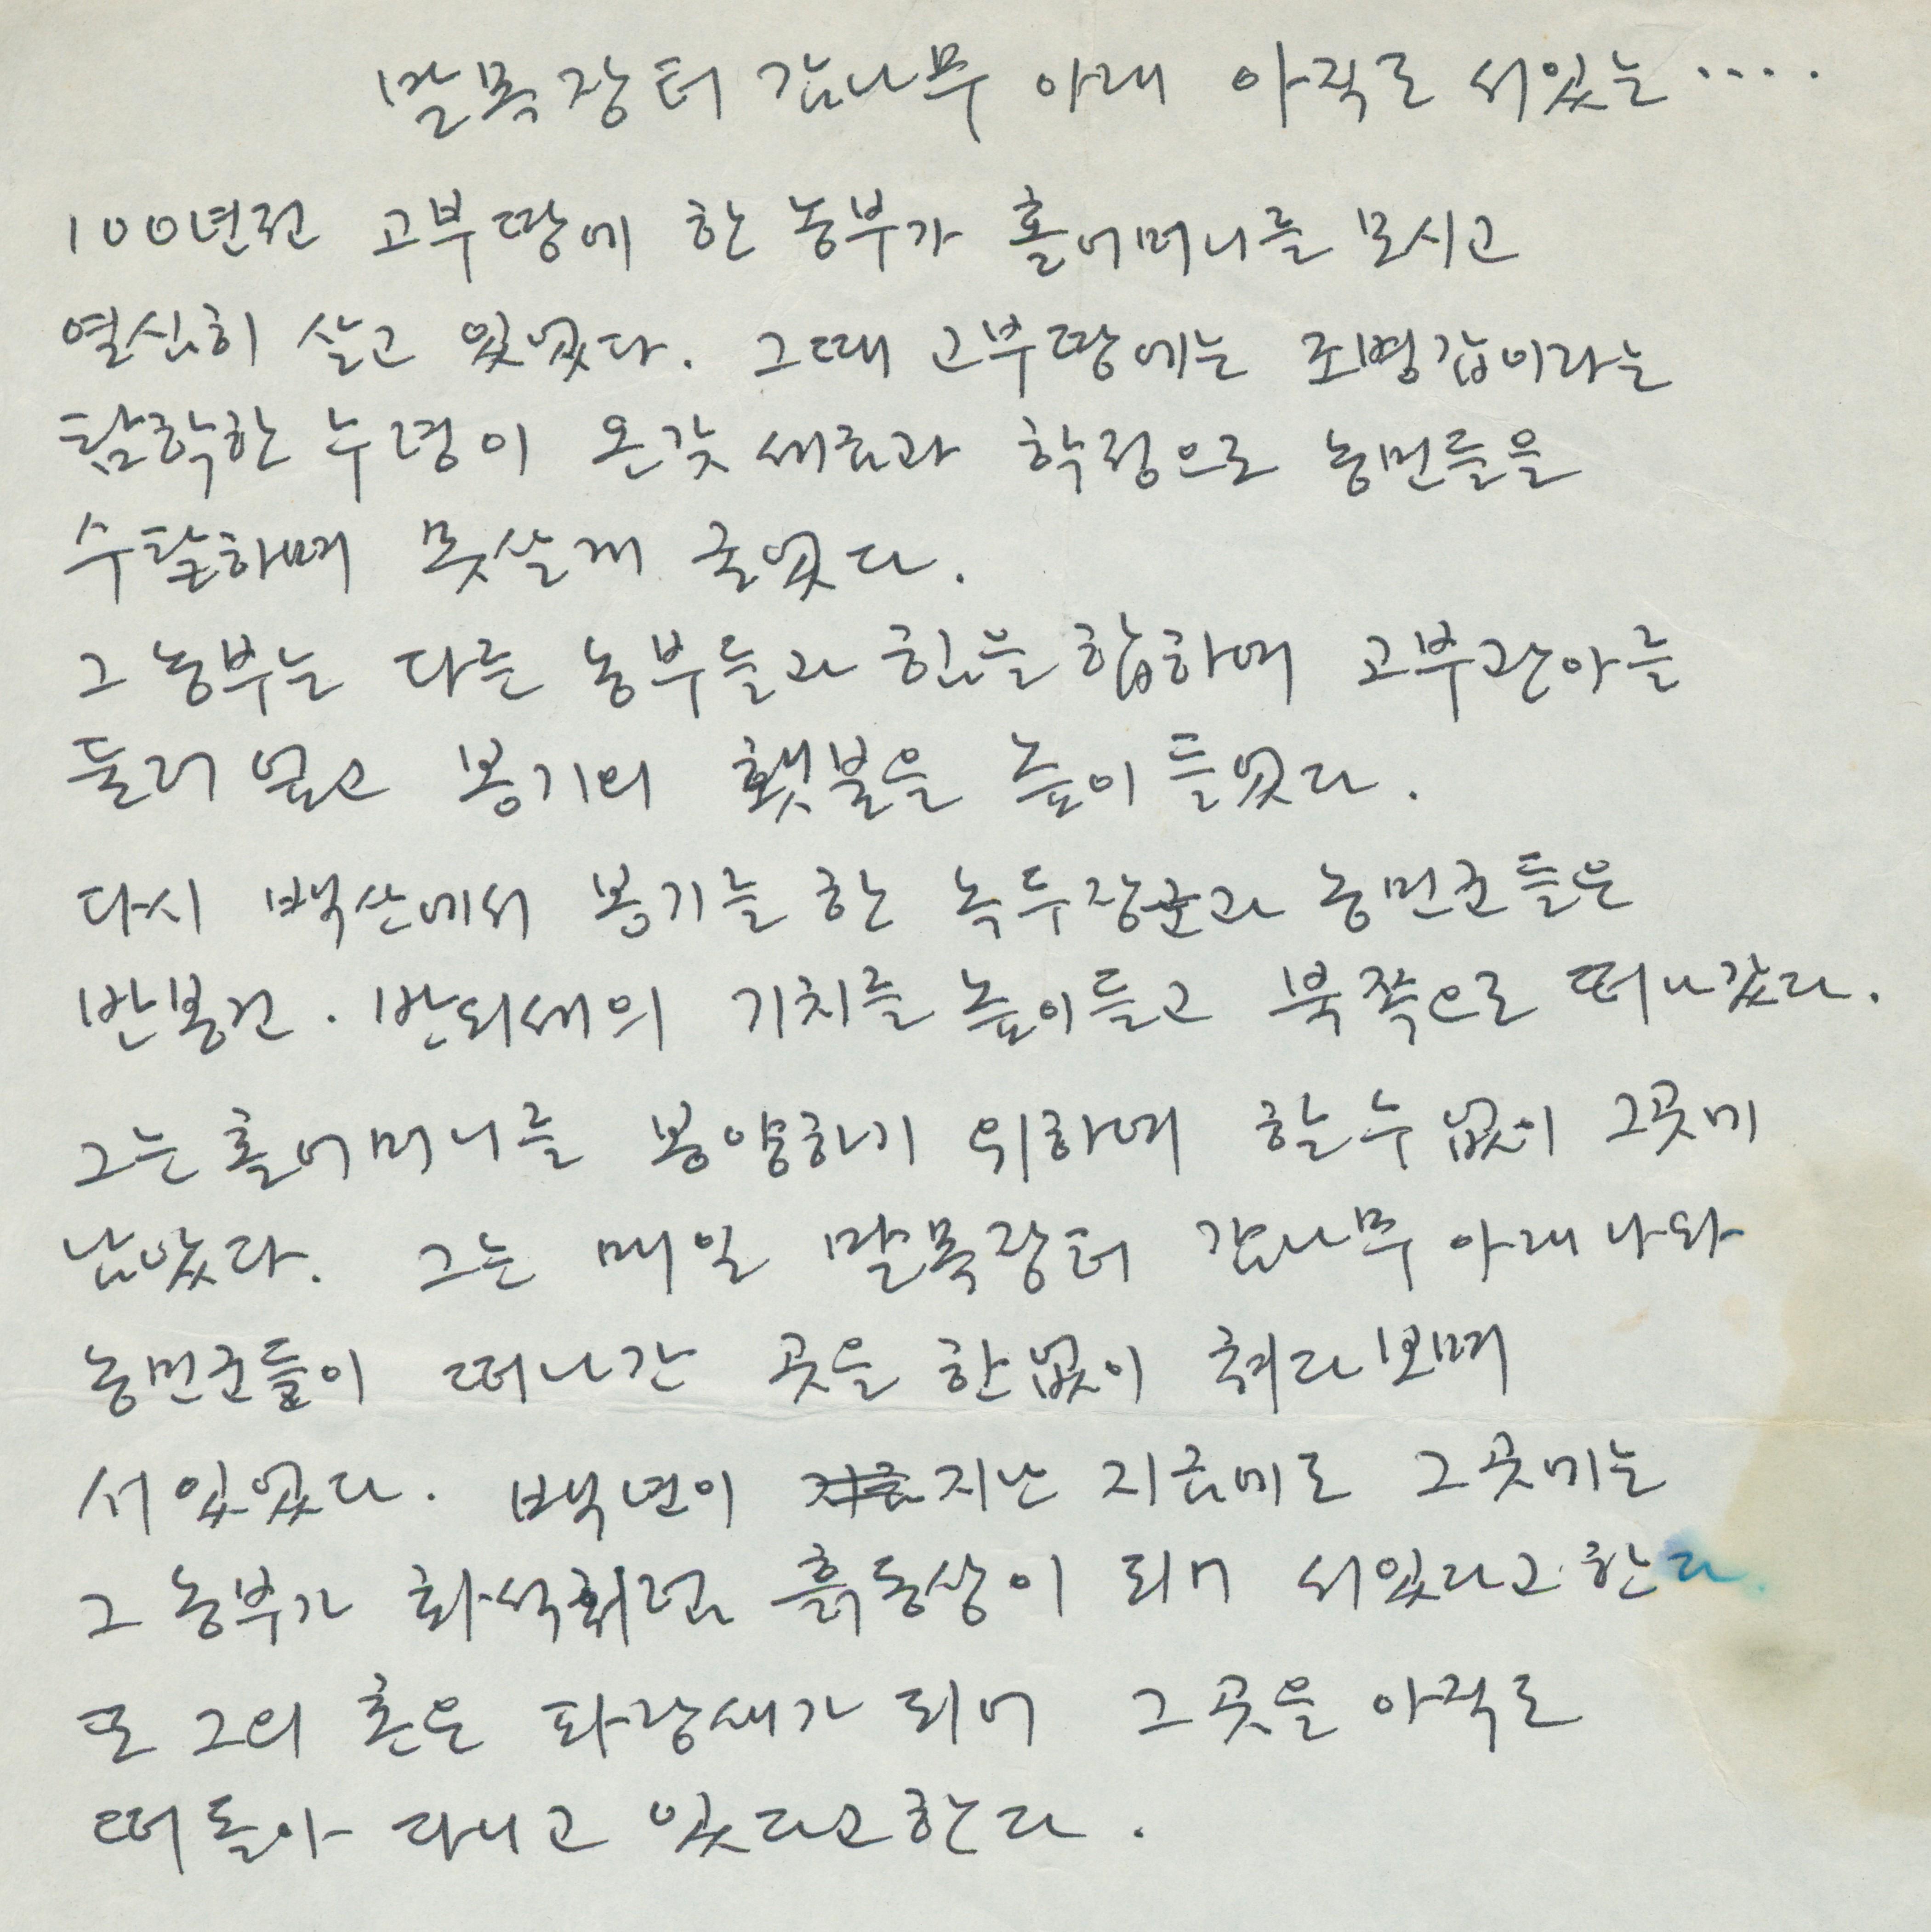 말목장터 감나무 아래 아직도 서있는 ....
100년전 고부땅에 한 농부가 홀어머니를 모시고
열심히 살고 있었다. 그때 고부땅에는 조병갑이라는
탐학한 수령이 온갖 세금과 학정으로 농민들을
수탈하며 못살게 굴었다.
그 농부는 다른 농부들과 힘을 합하여 고부관아를
둘러 엎고 봉기의 횃불을 높이 들었다.
다시 백산에서 봉기를 한 녹두장군과 농민군들은
반봉건 · 반외세의 기치를 높이들고 북쪽으로 떠나갔다.
그는 홀어머니를 봉양하기 위하여 할수없이 그곳에
남았다. 그는 매일 말목장터 감나무 아래 나와
농민군들이 떠나간 곳을 한없이 쳐다보며
서있었다. 백년이 지난 지금에도 그곳에는
그 농부가 화석처럼 흙동상이 되어 서있다고 한다.
또 그의 혼은 파랑새가 되어 그곳을 아직도
떠돌아 다니고 있다고한다.